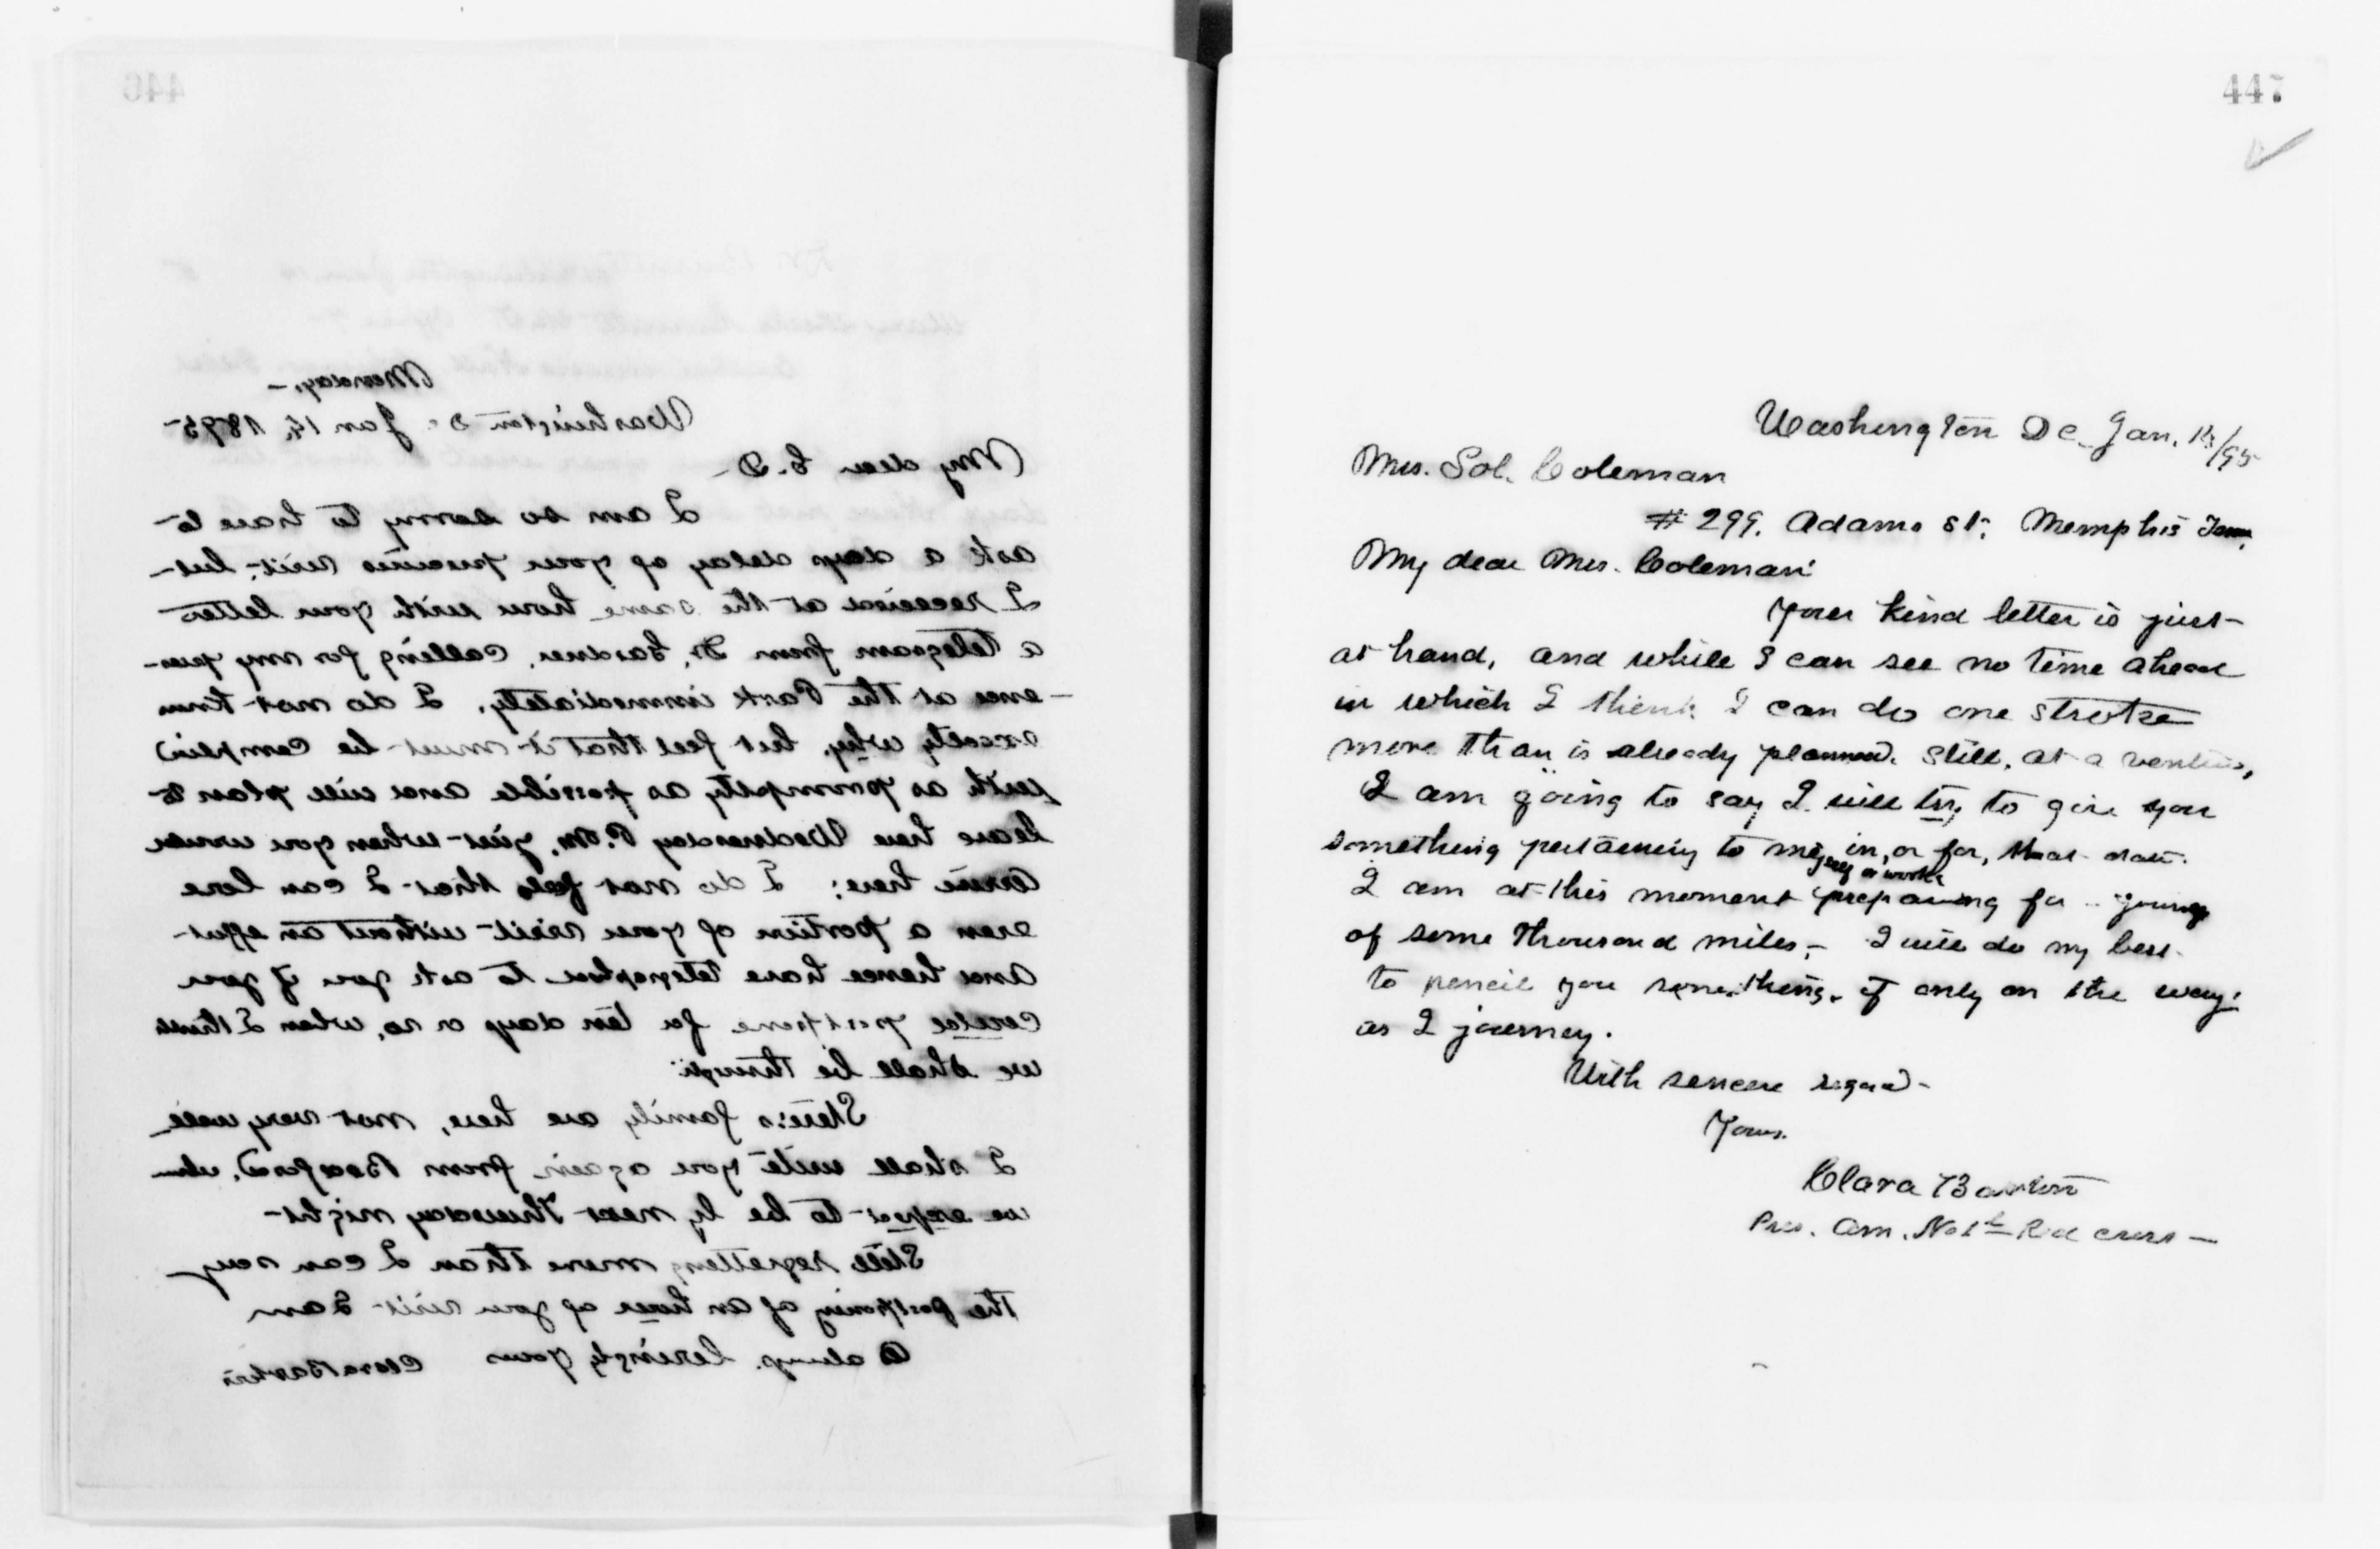 446
Monday, -
Washington D. Jan 14, 1895-
My dear C. D -
I am so sorry to have to
ask a days delay of your precious visit; but-
I received at the same hour with your letter
a telegram from Dr. Gardner, calling for my pres-
ence at the Park immediately, I do not know
exactly why, but feel that it must be complied
with as promptly as possible and will plan to
leave here Wednesday P.M. just when you would
arrive here; I do not feel that I can lose
even a portion of your visit without an effort-
and hence have telegraphed to ask you if you
could postpone for ten days or so, when I think
we shall be through:
Steve's family are here, not very well
I shall write you again from Bedford, when
we expect to be by next Thursday night-
Still regretting more than I can say
the postponing of an hour of your visit- I am
as always, lovingly yours Clara Barton
447
Washington DC Jan. 14/95
Mrs. Sol. Coleman
# 299, Adams St; Memphis Tenn.
My dear Mrs. Coleman
Your kind letter is just-
at hand, and while I can see no time ahead
in which I think I can do one stroke
more than is already planned. Still, at a venture,
I am going to say I will try to give you
something pertaining to myself or work, in, or for, that date.
I am at this moment preparing for journey
of some thousand miles,- I will do my best
to pencil you something, if only on the way;
as I journey.
With sincere regard-
Yours.
Clara Barton
Pres. Am. Natl Red Cross -